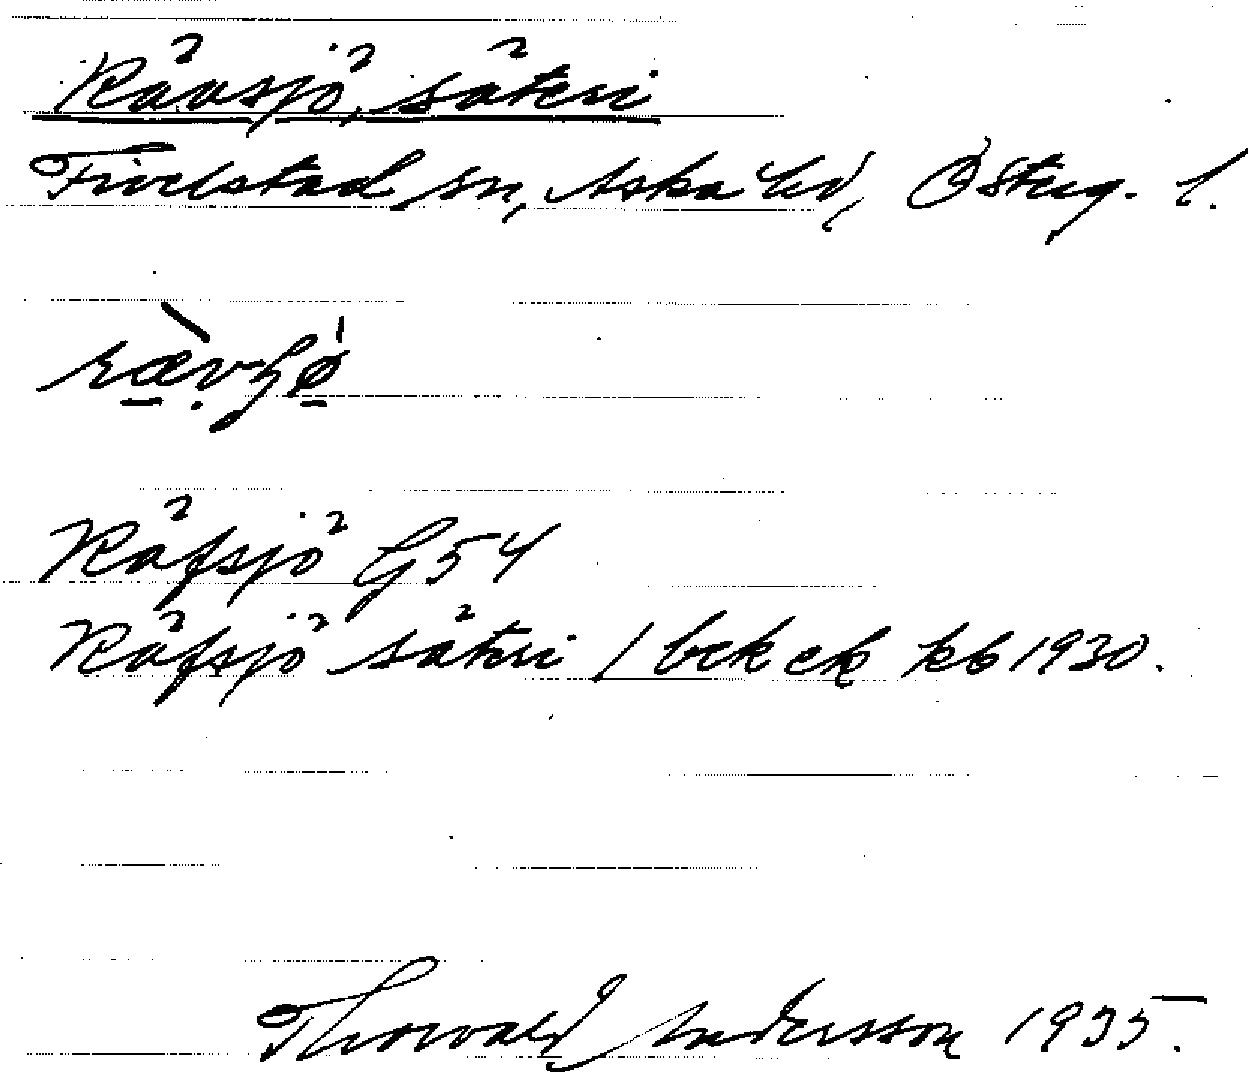 Rävsjö, säteri
Fivelstad sn, Aska hd, Östug. l.
Räfsjö G54
Räfsjö säteri / bek ek kb 1930.
Thorvald Andersson 1935.